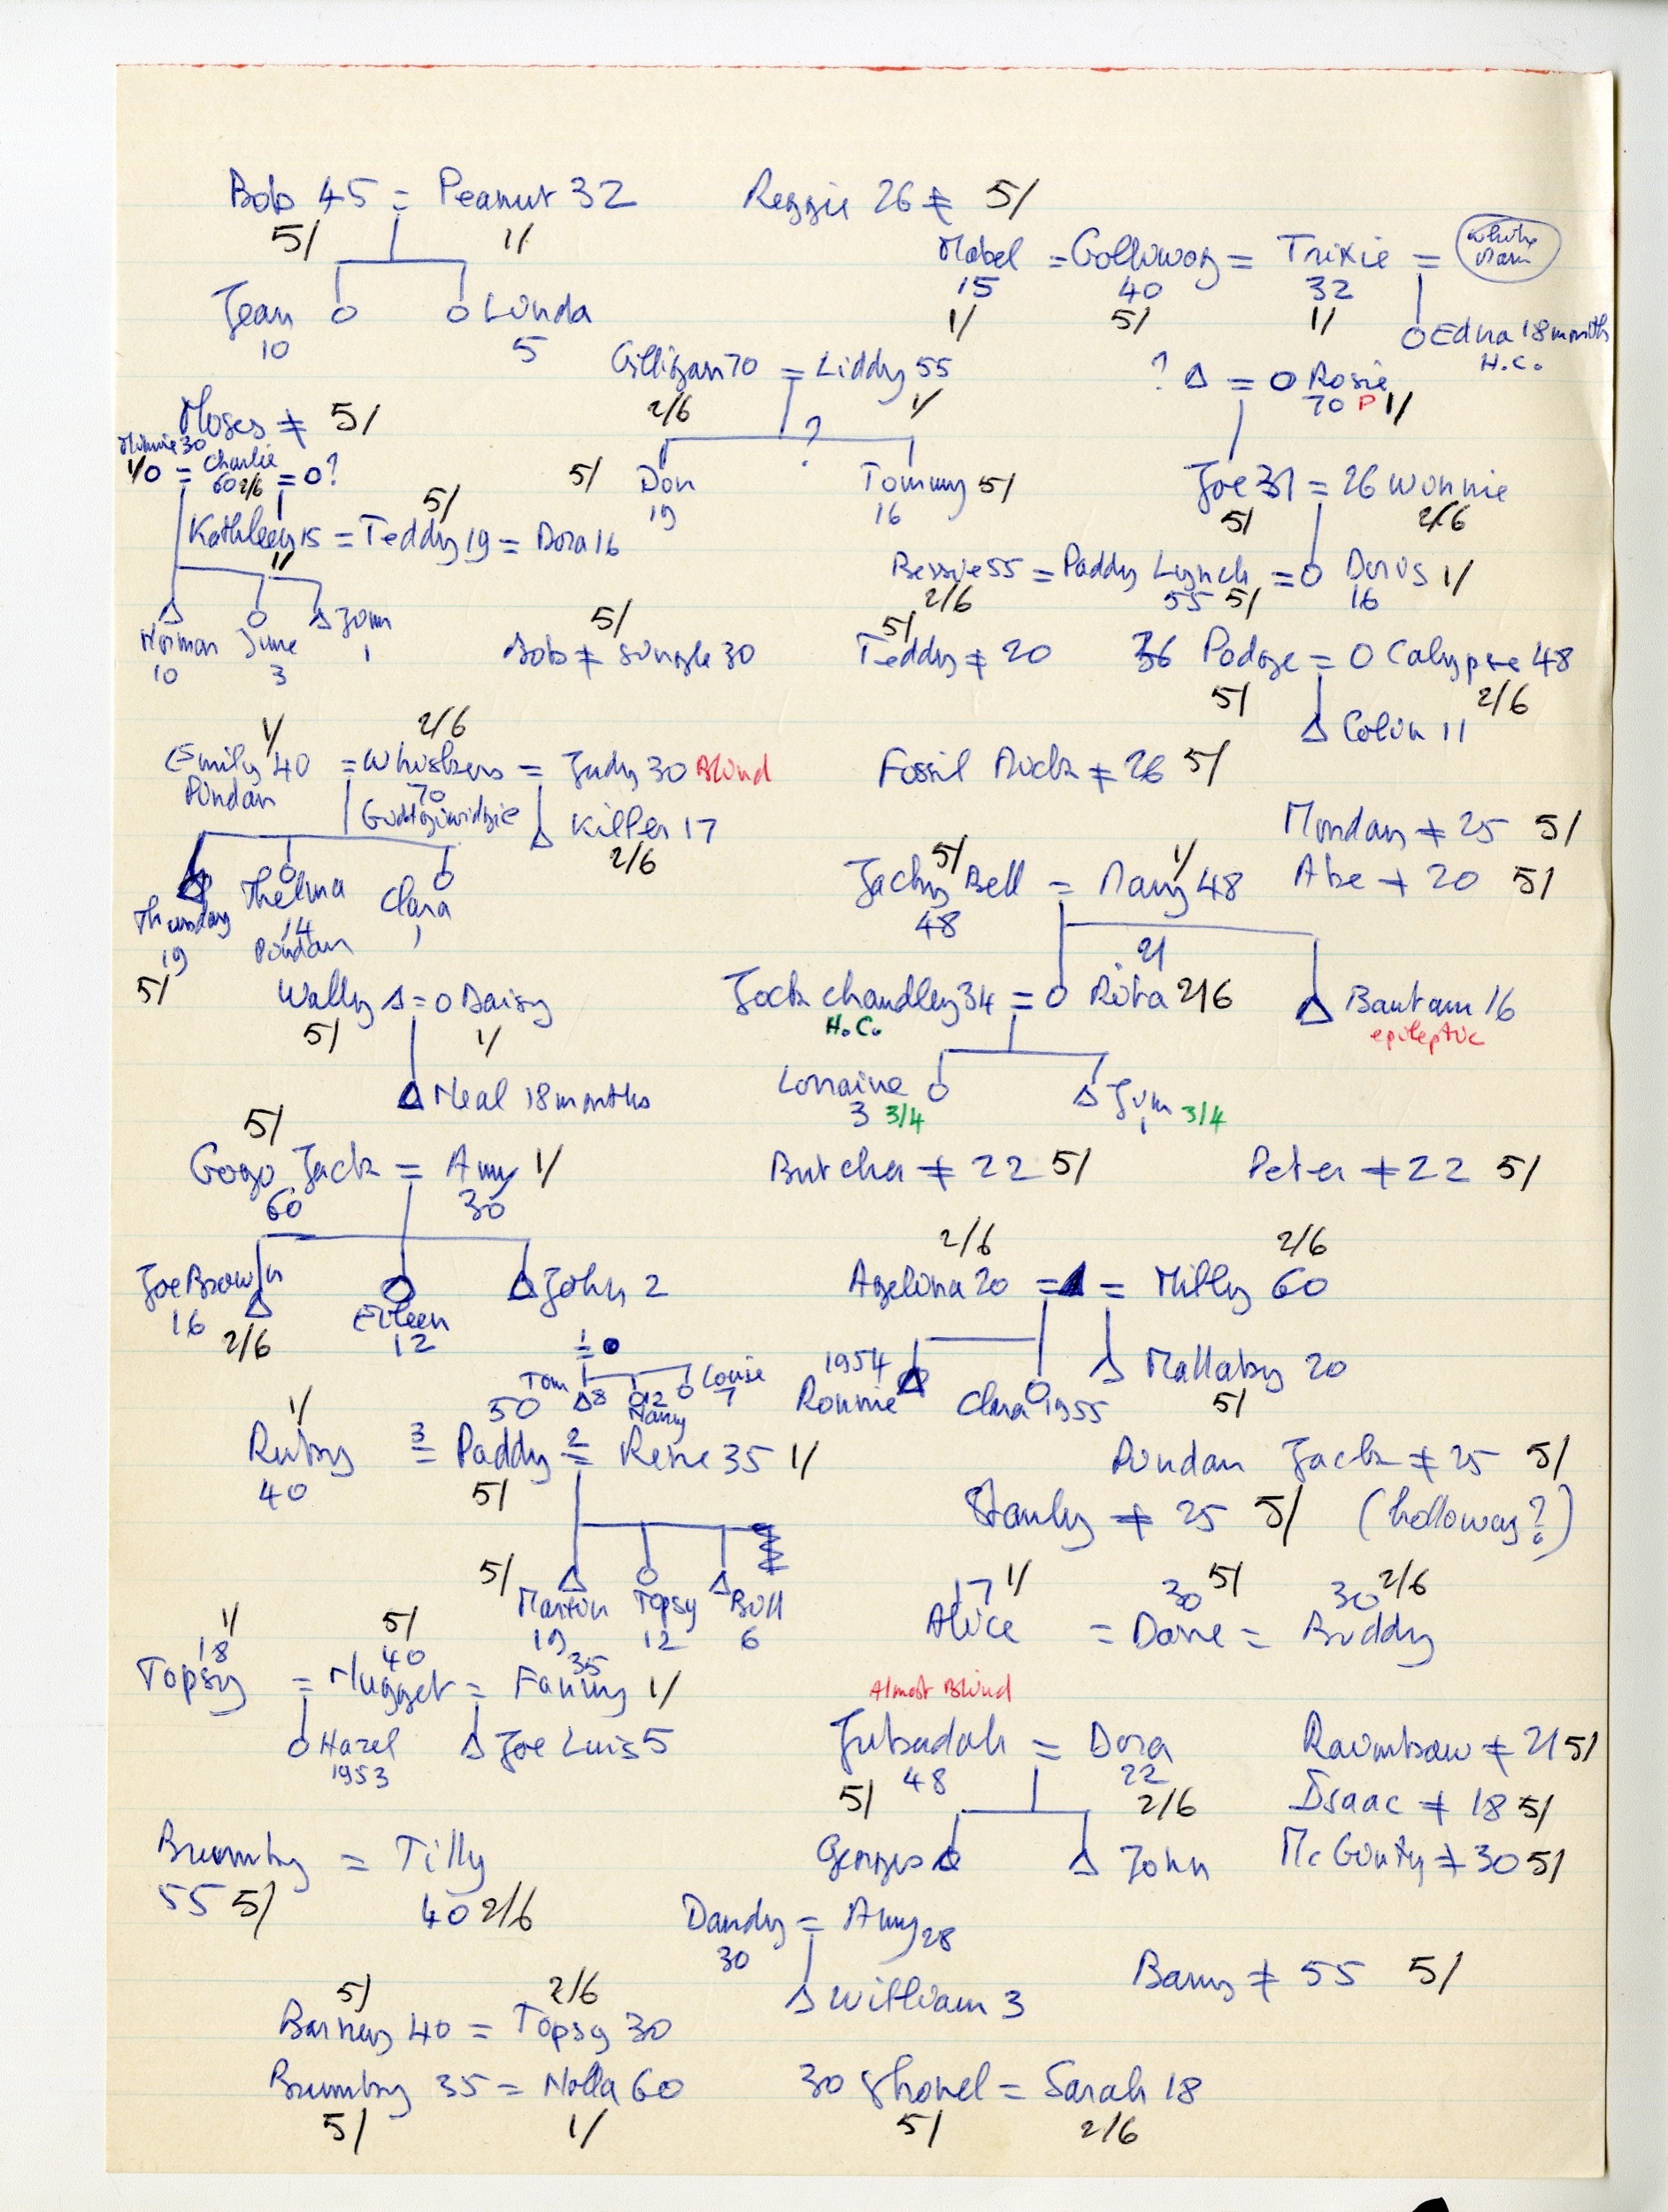 Bob 45 = Peanut 32
5/ 1/
Reggie 26 ≠ 5/
Jean Linda
10 5
Mabel = Golloway = Trixie = white man
15 40 32
1/ 5/ 1/
Edna 18 months
H.C.
Gilligan 70 = Liddy 55
2/6 1/
?
Don Tommy 5/
5/ 19 16
? Δ = O Rosie
70 P 1/
Joe 31 = 26 Winnie
5/ 2/6
Moses ≠ 5/
Minnie 30
1/ O = Charlie = O?
60 2/6
Kathleen 15 = Teddy 19 = Dora 16
1/ 5/
Norman June
10 3 1
Bessie 55 = Paddy Lynch = O Doris 1/
2/6 55 5/ 16
5/
Bob ≠ single 30
5/
Teddy ≠ 20
36 Podge = O Calypse 48
5/ 2/6
Δ Colin 11
1/ 2/6
Emily 40 = Whiskers = Judy 30 Blind
Pindan 70
Killer 17
2/6
Thursday Thelma Clara
19 14 1
5/ Pindan
Fossil Rock ≠ 26 5/
Monday ≠ 25 5/
Abe ≠ 20 5/
5/ 1/
Jacky Bell = Mary 48
48
21
Jock Chandley 34 = O Rita 2/6
H.C.
Δ Bantam 16
epileptic
Lorraine Jim 3/4
3 3/4 1
Wally Δ = O Daisy
5/ 1/
Δ Neal 18 months
5/
Gogo Jack = Amy 1/
60 30
Joe Brown Eileen John 2
16 12
2/6
Butcher ≠ 22 5/
Peter ≠ 22 5/
2/6 2/6
Agelina 20 = Δ = Milly 60
1954
Ronnie Clara 1955
Δ Mallaby 20
5/
1
= O
Tom Δ 8 O 12 Nancy O Louise 7
50
1/
Ruby 3= Paddy 2= Rene 35 1/
40 5/
5/ Martin Topsy Bill
19 12 6
Pindan Jack ≠ 25 5/
Stanly ≠ 25 5/ (holloway?)
17 1/ 30 5/ 30 2/6
Alice = Dave = Biddy
1/ 5/
18 40 35
Topsy = Nugget = Fanny 1/
O Hazel Δ Joe Luis 5
1953
Almost Blind
Jubadah = Dora
48 22
5/ 2/6
George Δ Δ John
Rainbow ≠ 21 5/
Isaac ≠ 18 5/
McGinty ≠ 30 5/
Brumby = Tilly
55 5/ 40 2/6
Dandy = Amy 28
30
Δ William 3
Barry ≠ 55 5/
5/ 2/6
Barney 40 = Topsy 30
Brumby 35 = Nolla 60
5/ 1/
30 Shovel = Sarah 18
5/ 2/6